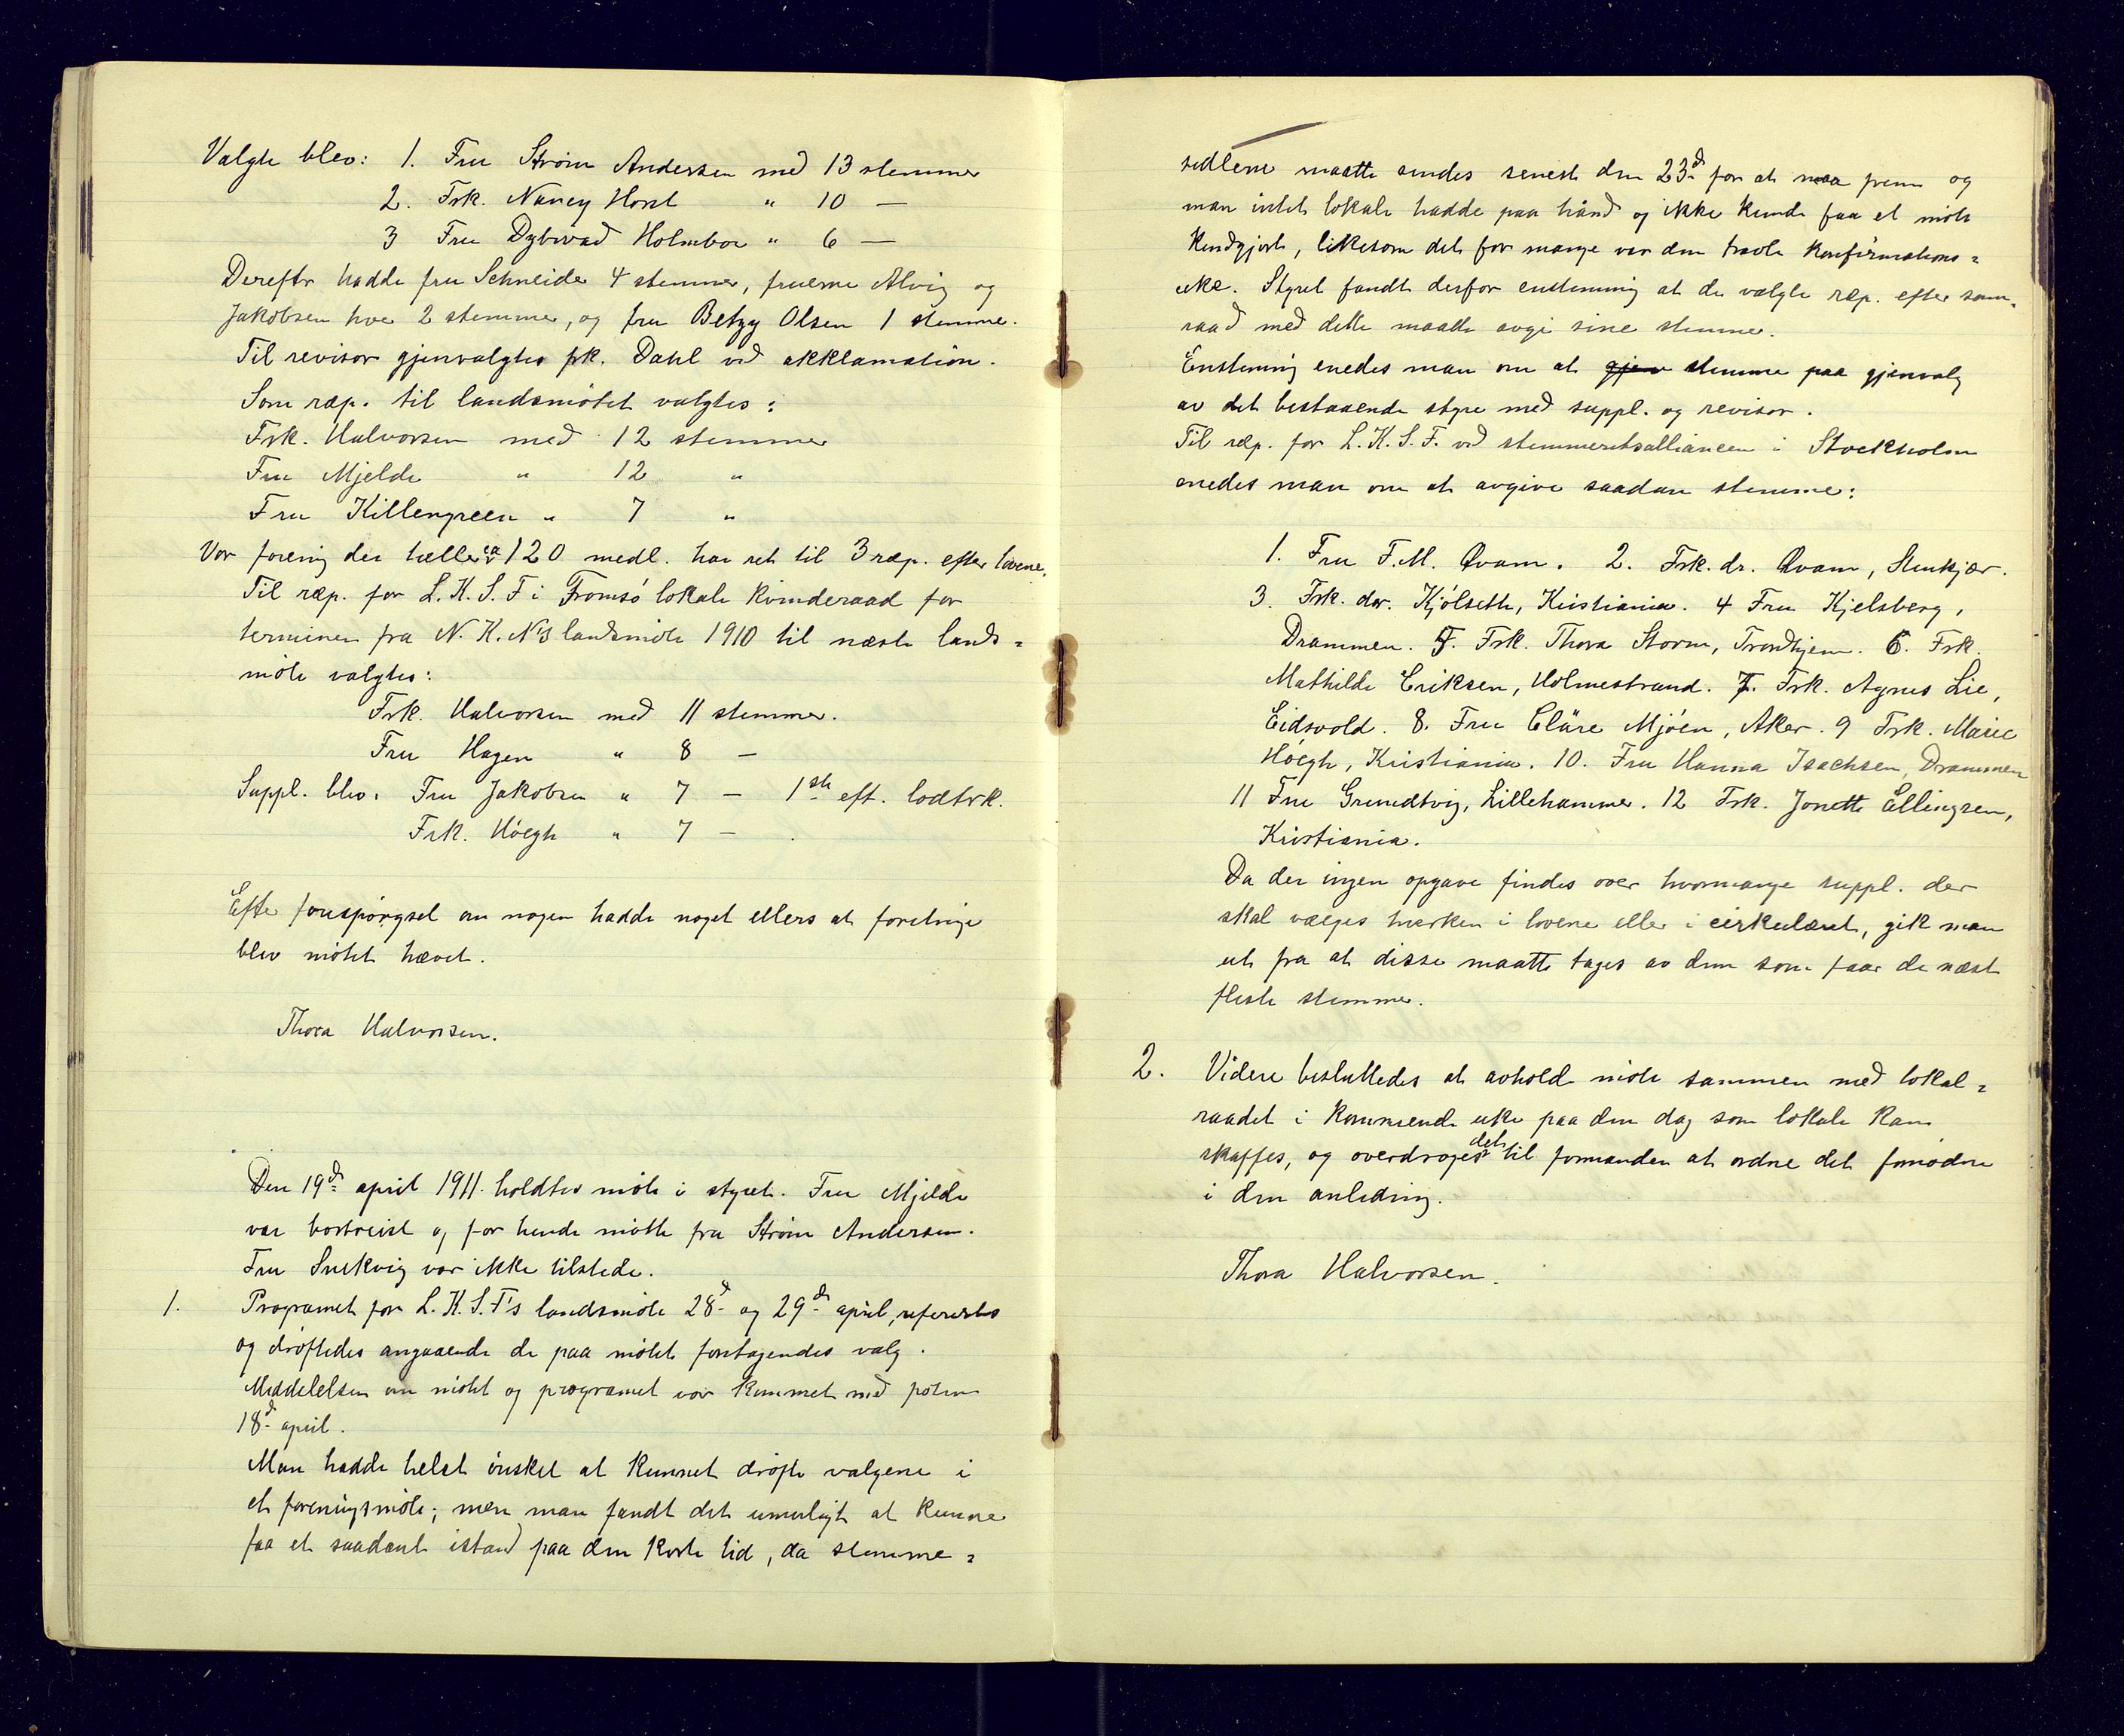 Valgte blev: 1. Fru Strøm Andersen med 13 stemmer
2. Frk. Nancy Horst " 10 —
3 Fru Dybwad Holmboe " 6 —
Derefter hadde fru Schneider 4 stemmer, fruerne Alvig og
Jakobsen hver 2 stemmer, og fru Betzy Olsen 1 stemme.
Til revisor gjenvalgtes frk. Dahl ved akklamation.
Som ræp. til landsmötet valgtes:
Frk. Halvorsen med 12 stemmer
Fru Mjelde " 12 "
Fru Killengreen " 7 "
Vor forening der tæller ca 120 medl. har ret til 3 ræp. efter lovene.
Til ræp. for L.K.S.F i Tromsö lokale kvinderaad for
terminen fra N.K.N's landsmöte 1910 til næste lands=
möte valgtes:
Frk. Halvorsen med 11 stemmer.
Fru Hagen " 8 —
Suppl. blev. Fru Jakobsen " 7 — 1ste eft. lodtrk.
Frk. Höegh " 7 —
Efter forespörgsel om nogen hadde noget ellers at foredrage
blev mötet hævet.
Thora Halvorsen.
Den 19d april 1911 holdtes möte i styret. Fru Mjelde
var bortreist og for hende mötte fru Ström Andersen.
Fru Snekvig var ikke tilstede.
1. Programet for L.K.S.F's landsmöte 28d og 29d april, refereredes
og dröftedes angaaende de paa mötet foretagendes valg.
Meddelelsen om mötet og programet var kommet med posten
18d april.
Man hadde helst önsket at kunnet dröfte valgene i
et foreningsmöte; men man fandt det umuligt at kunne
faa et saadant istand paa den korte tid, da stemme=
sedlerne maatte sendes senest den 23d for at naa frem og
man intet lokale hadde paa hånd og ikke kunde faa et möte
kundgjort, likesom det for mange var den travle konfirmations=
uke. Styret fandt derfor enstemmig at de valgte ræp. efter sam=
raad med dette maatte avgi sine stemmer.
Enstemmig enedes man om at gjen stemme paa gjenvalg
av det bestaaende styre med suppl. og revisor.
Til ræp. for L.K.S.F. ved stemmeretsalliancen i Stockholm
enedes man om at avgive saadan stemme:
1. Fru F.M. Qvam. 2. Frk. dr. Qvam, Stenkjær.
3. Frk. dr. Kjölseth, Kristiania. 4 Fru Kjelsberg,
Drammen. 5. Frk. Thora Storm, Trondhjem. 6. Frk.
Mathilde Eriksen, Holmestrand. 7. Frk. Agnes Lie,
Eidsvold. 8. Fru Cläre Mjöen, Aker. 9 Frk. Marie
Höegh, Kristiania. 10. Fru Hanna Isachsen, Drammen
11 Fru Grundtvig, Lillehammer. 12 Frk. Jonette Ellingsen,
Kristiania.
Da der ingen opgave findes over hvormange suppl. der
skal vælges hverken i lovene eller i cirkulæret, gik man
ut fra at disse maatte tages av dem som faar de næst
fleste stemmer.
2. Videre besluttedes at avholde möte sammen med lokal=
raadet i kommende uke paa den dag som lokale kan
skaffes, og overdroges det til formanden at ordne det fornödne
i den anledning.
Thora Halvorsen.